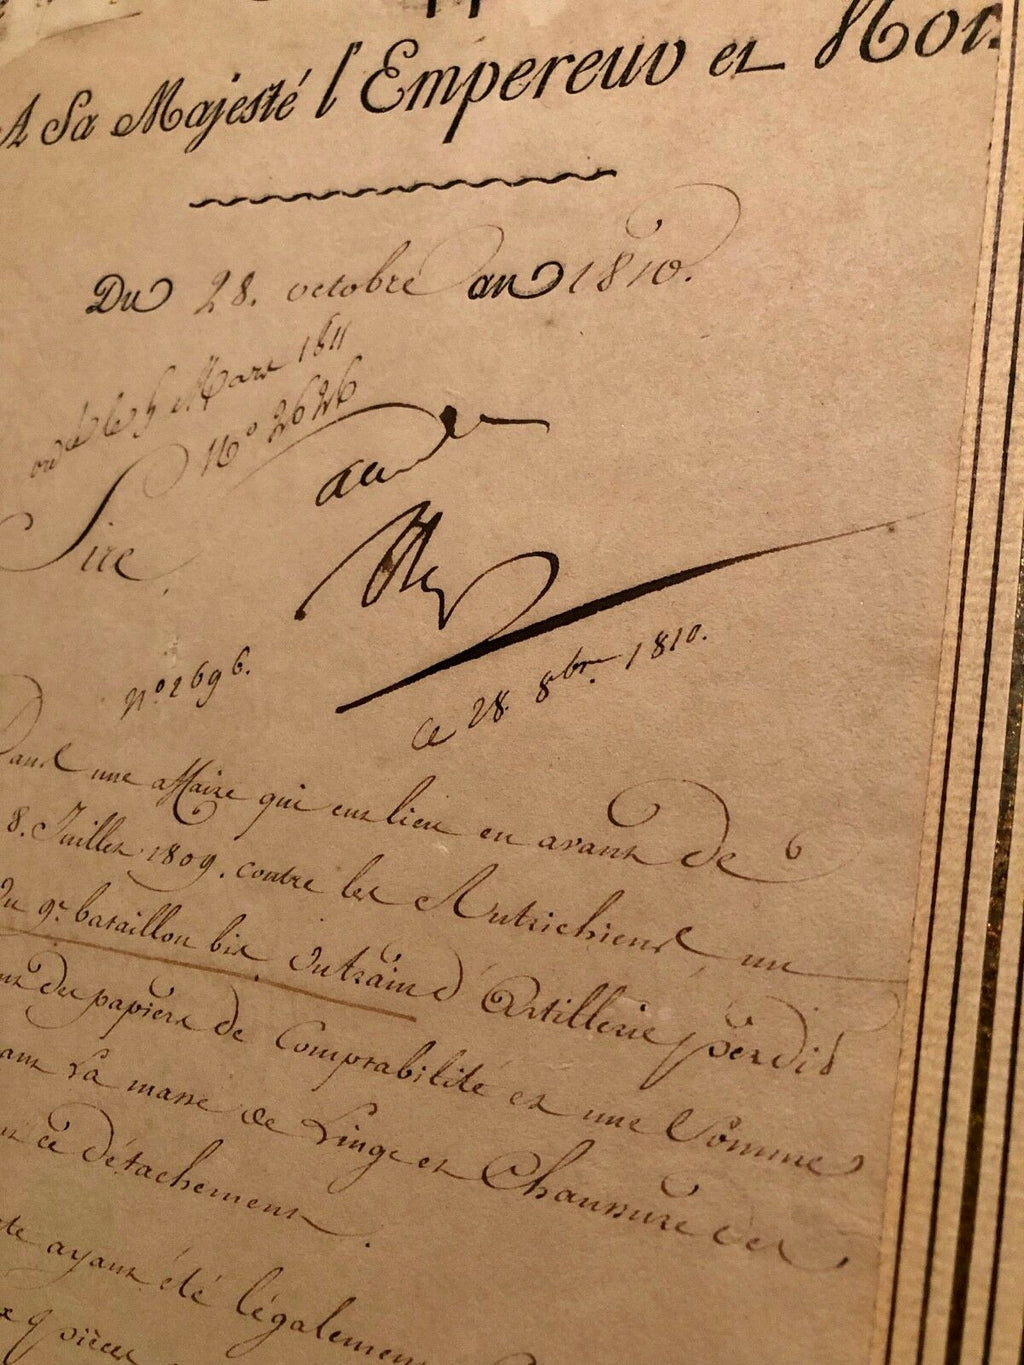 A Sa Majesté l'Empereur et Roi.
Du 28. octobre an 1810.
le 5 Mars 1811
N° 2626
Sire
n° 2696.
ce 28 8bre 1810.
Dans une affaire qui eut lieu en avant de
8. Juillet 1809. contre les Autrichiens, un
du 9e bataillon bis du train d'Artillerie perdit
des papiers de Comptabilité et une Somme
la masse de Linge et Chaussure des
ce détachement.
ayant été légalement
pièces